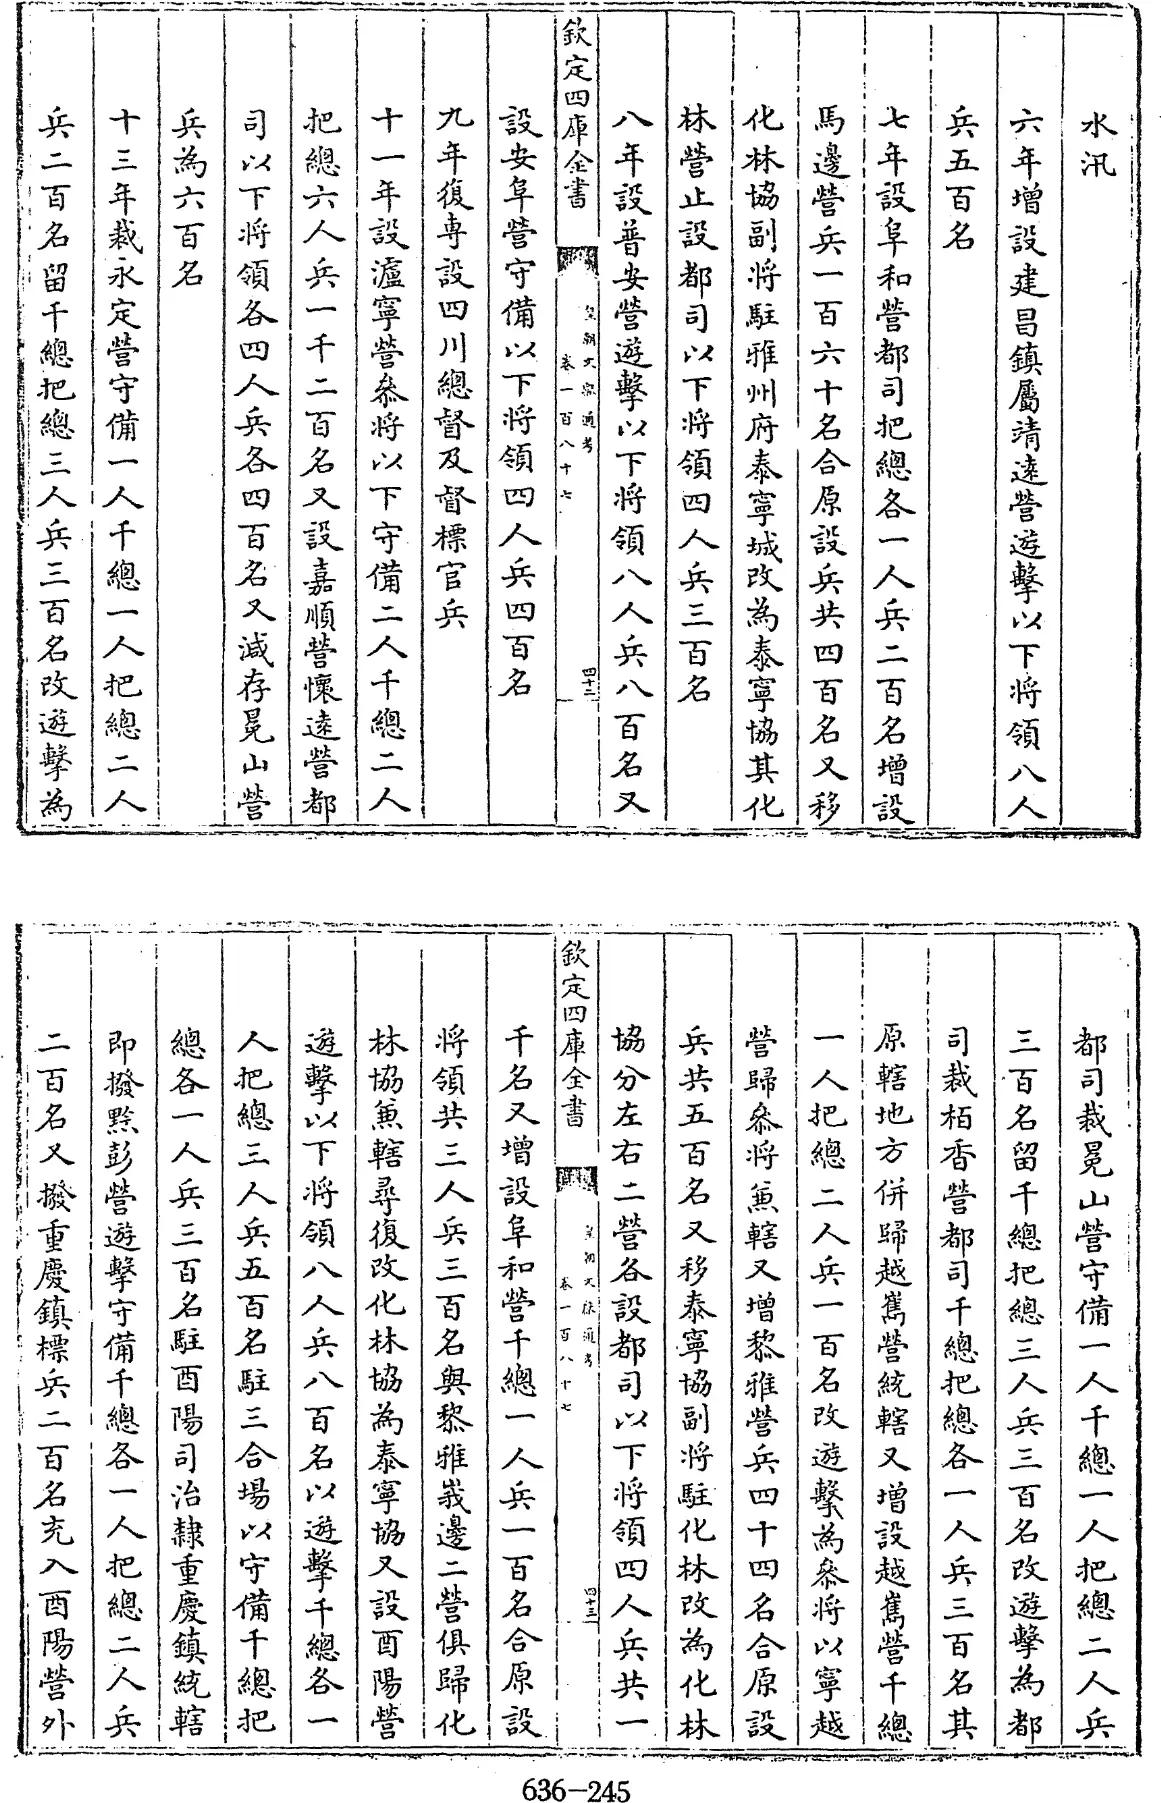 水汛
六年增設建昌鎮屬靖遠營遊擊以下將領八人
兵五百名
七年設阜和營都司把總各一人兵二百名增設
馬邊營兵一百六十名合原設兵共四百名又移
化林協副將駐雅州府泰寧城改為泰寧協其化
林營止設都司以下將領四人兵三百名
八年設普安營遊擊以下將領八人兵八百名又
欽定四庫全書
皇朝文獻通考
卷一百八十七
四十二
設安阜營守備以下將領四人兵四百名
九年復專設四川總督及督標官兵
十一年設瀘寧營叅將以下守備二人千總二人
把總六人兵一千二百名又設嘉順營懷遠營都
司以下將領各四人兵各四百名又減存冕山營
兵為六百名
十三年裁永定營守備一人千總一人把總二人
兵二百名留千總把總三人兵三百名改遊擊為
都司裁冕山營守備一人千總一人把總二人兵
三百名留千總把總三人兵三百名改遊擊為都
司裁栢香營都司千總把總各一人兵三百名其
原轄地方併歸越嶲營統轄又增設越嶲營千總
一人把總二人兵一百名改遊擊為叅將以寧越
營歸叅將兼轄又增黎雅營兵四十四名合原設
兵共五百名又移泰寧協副將駐化林改為化林
協分左右二營各設都司以下將領四人兵共一
欽定四庫全書
皇朝文獻通考
卷一百八十七
四十三
千名又增設阜和營千總一人兵一百名合原設
將領共三人兵三百名與黎雅峩邊二營俱歸化
林協兼轄尋復改化林協為泰寧協又設酉陽營
遊擊以下將領八人兵八百名以遊擊千總各一
人把總三人兵五百名駐三合場以守備千總把
總各一人兵三百名駐酉陽司治隸重慶鎮統轄
即撥黔彭營遊擊守備千總各一人把總二人兵
二百名又撥重慶鎮標兵二百名充入酉陽營外
636-245